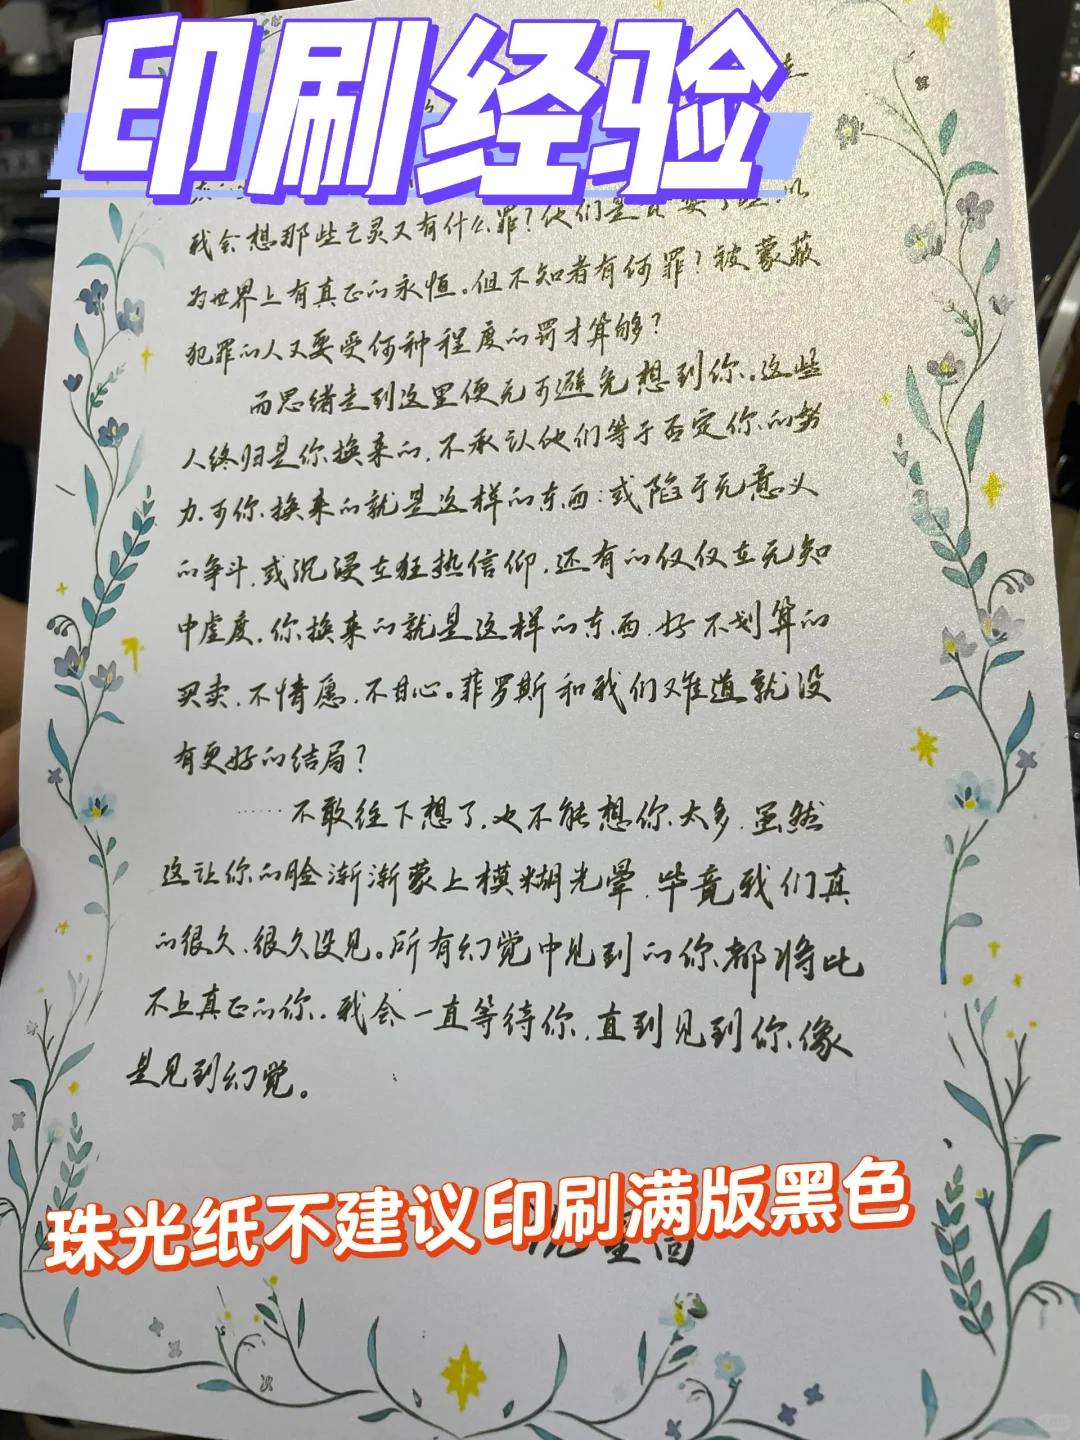 印刷经验
我会想那些亡灵又有什么罪？他们是
为世界上有真正的永恒。但不知者有何罪？被蒙蔽
犯罪的人又要受何种程度的罚才算够？
而思绪走到这里便无可避免想到你。这些
人终归是你换来的，不承认他们等于否定你的努
力，可你换来的就是这样的东西：或陷于无意义
的争斗，或沉浸在狂热信仰，还有的仅仅在无知
中虚度，你换来的就是这样的东西，好不划算的
买卖，不情愿，不甘心。菲罗斯和我们难道就没
有更好的结局？
……不敢往下想了，也不能想你太多，虽然
这让你的脸渐渐蒙上模糊光晕，毕竟我们真
的很久、很久没见。所有幻觉中见到的你都将比
不上真正的你。我会一直等待你，直到见到你像
是见到幻觉。
珠光纸不建议印刷满版黑色